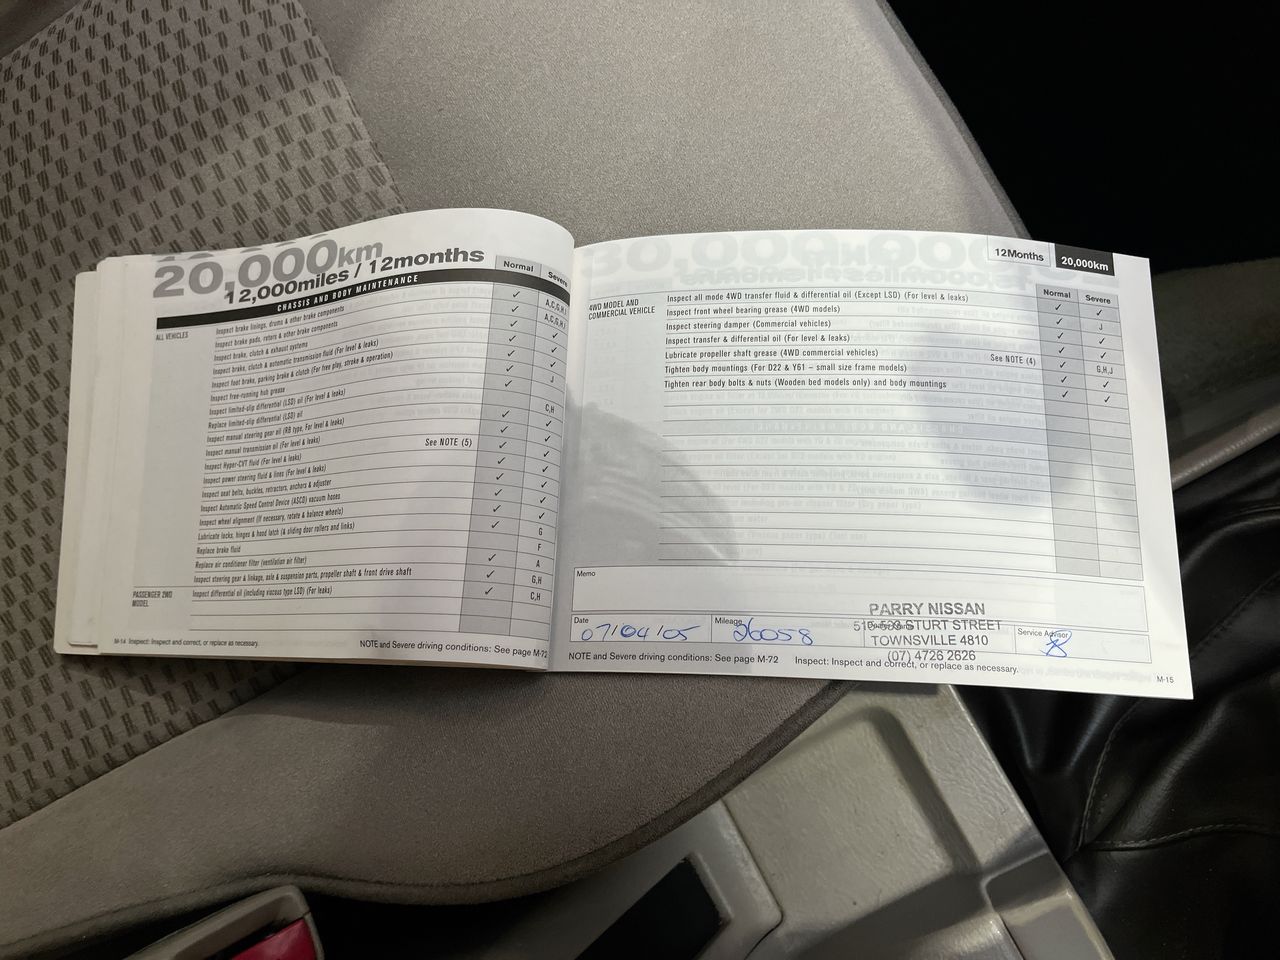 20,000km
12,000miles / 12months
Normal Severe
CHASSIS AND BODY MAINTENANCE
ALL VEHICLES
Inspect brake linings, drums & other brake components ✓ A,C,G,H,I
Inspect brake pads, rotors & other brake components ✓ A,C,G,H,I
Inspect brake, clutch & exhaust systems ✓ ✓
Inspect brake, clutch & automatic transmission fluid (For level & leaks) ✓ ✓
Inspect foot brake, parking brake & clutch (For free play, stroke & operation) ✓ ✓
Inspect free-running hub grease
Inspect limited-slip differential (LSD) oil (For level & leaks)
Replace limited-slip differential (LSD) oil
Inspect manual steering gear oil (RB type, For level & leaks)
Inspect manual transmission oil (For level & leaks)
Inspect Hyper-CVT fluid (For level & leaks) See NOTE (5)
Inspect power steering fluid & lines (For level & leaks)
Inspect seat belts, buckles, retractors, anchors & adjuster
Inspect Automatic Speed Control Device (ASCD) vacuum hoses
Inspect wheel alignment (If necessary, rotate & balance wheels)
Lubricate locks, hinges & hood latch (& sliding door rollers and links)
Replace brake fluid
Replace air conditioner filter (ventilation air filter)
Inspect steering gear & linkage, axle & suspension parts, propeller shaft & front drive shaft ✓ G,H
PASSENGER 2WD MODEL
Inspect differential oil (including viscous type LSD) (For leaks) ✓ C,H
M-14 Inspect: Inspect and correct, or replace as necessary.
NOTE and Severe driving conditions: See page M-72
12Months 20,000km
Normal Severe
4WD MODEL AND
COMMERCIAL VEHICLE
Inspect all mode 4WD transfer fluid & differential oil (Except LSD) (For level & leaks) ✓ ✓
Inspect front wheel bearing grease (4WD models) ✓ J
Inspect steering damper (Commercial vehicles) ✓ ✓
Inspect transfer & differential oil (For level & leaks) ✓ ✓
Lubricate propeller shaft grease (4WD commercial vehicles) See NOTE (4) ✓ G,H,J
Tighten body mountings (For D22 & Y61 – small size frame models) ✓ ✓
Tighten rear body bolts & nuts (Wooden bed models only) and body mountings ✓ ✓
Memo
Date 07/04/05
Mileage 26058
PARRY NISSAN
STURT STREET
TOWNSVILLE 4810
(07) 4726 2626
Service Advisor
NOTE and Severe driving conditions: See page M-72 Inspect: Inspect and correct, or replace as necessary.
M-15